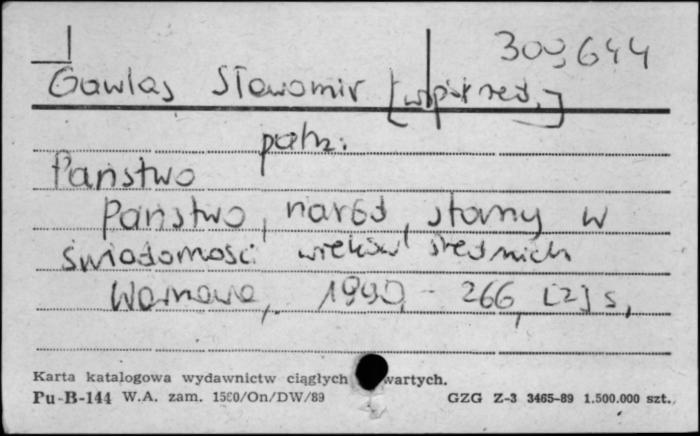 309644
Gawlas Sławomir [współred.]
patrz:
Państwo
Państwo, naród, stany w
świadomości wieków średnich
Warszawa, 1990, - 266, [2] s,
Karta katalogowa wydawnictw ciągłych wartych.
Pu-B-144 W.A. zam. 1560/On/DW/89 GZG Z-3 3465-89 1.500.000 szt.